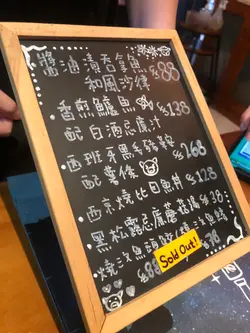 醬油漬吞拿魚 $88
和風沙律
·香煎鱸魚 $138
配白酒忌廉汁
·西班牙黑毛豬鞍 $168
配薯條
·西京燒比目魚丼 $128
·黑松露忌廉蘑菇湯 $38
$88
Sold Out!
$78